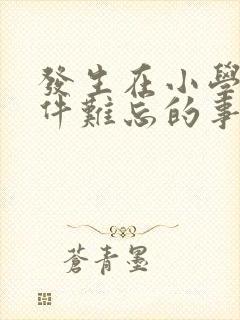 發生在小學
件難忘的事
蒼青墨